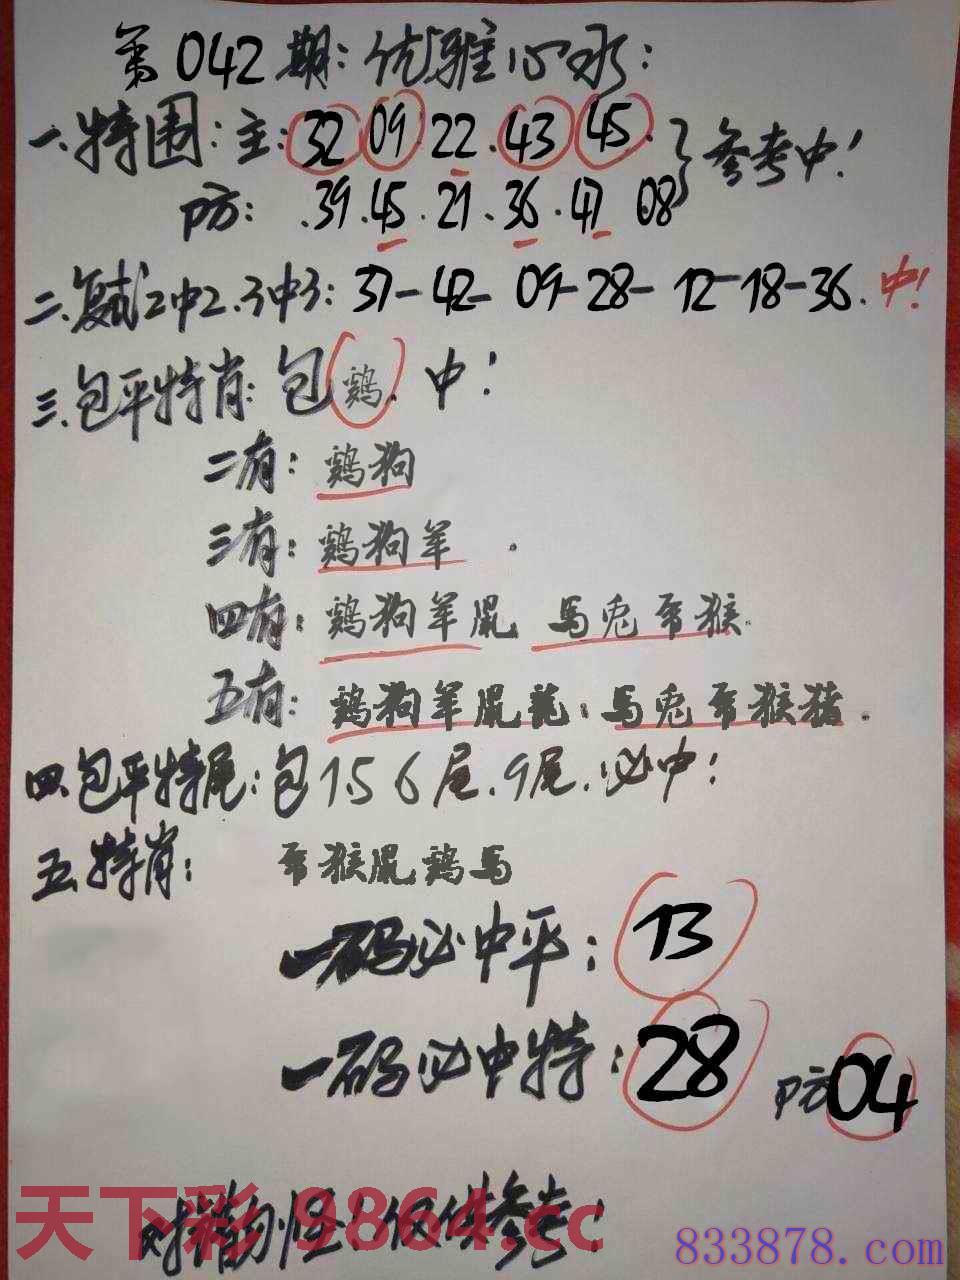 第042期:优雅心水:
一.特围:主:32 09 22.43 45.}参考中!
防:.39.45.21.36.47 08
二.复试2中2.3中3:37-42-09-28-12-18-36.中!
三.包平特肖:包鷄.中!
二有:鷄狗
三有:鷄狗羊.
四有:鷄狗羊鼠 馬兔 猴.
五有:鷄狗羊鼠龍:馬兔 猴猪.
四.包平特尾:包1.5 6尾.9尾.必中!
五.特肖: 猴鼠鷄馬
一码必中平:13
一码必中特:28 防04
天下彩 9864.cc
勿怪!仅供参考!
833878.com